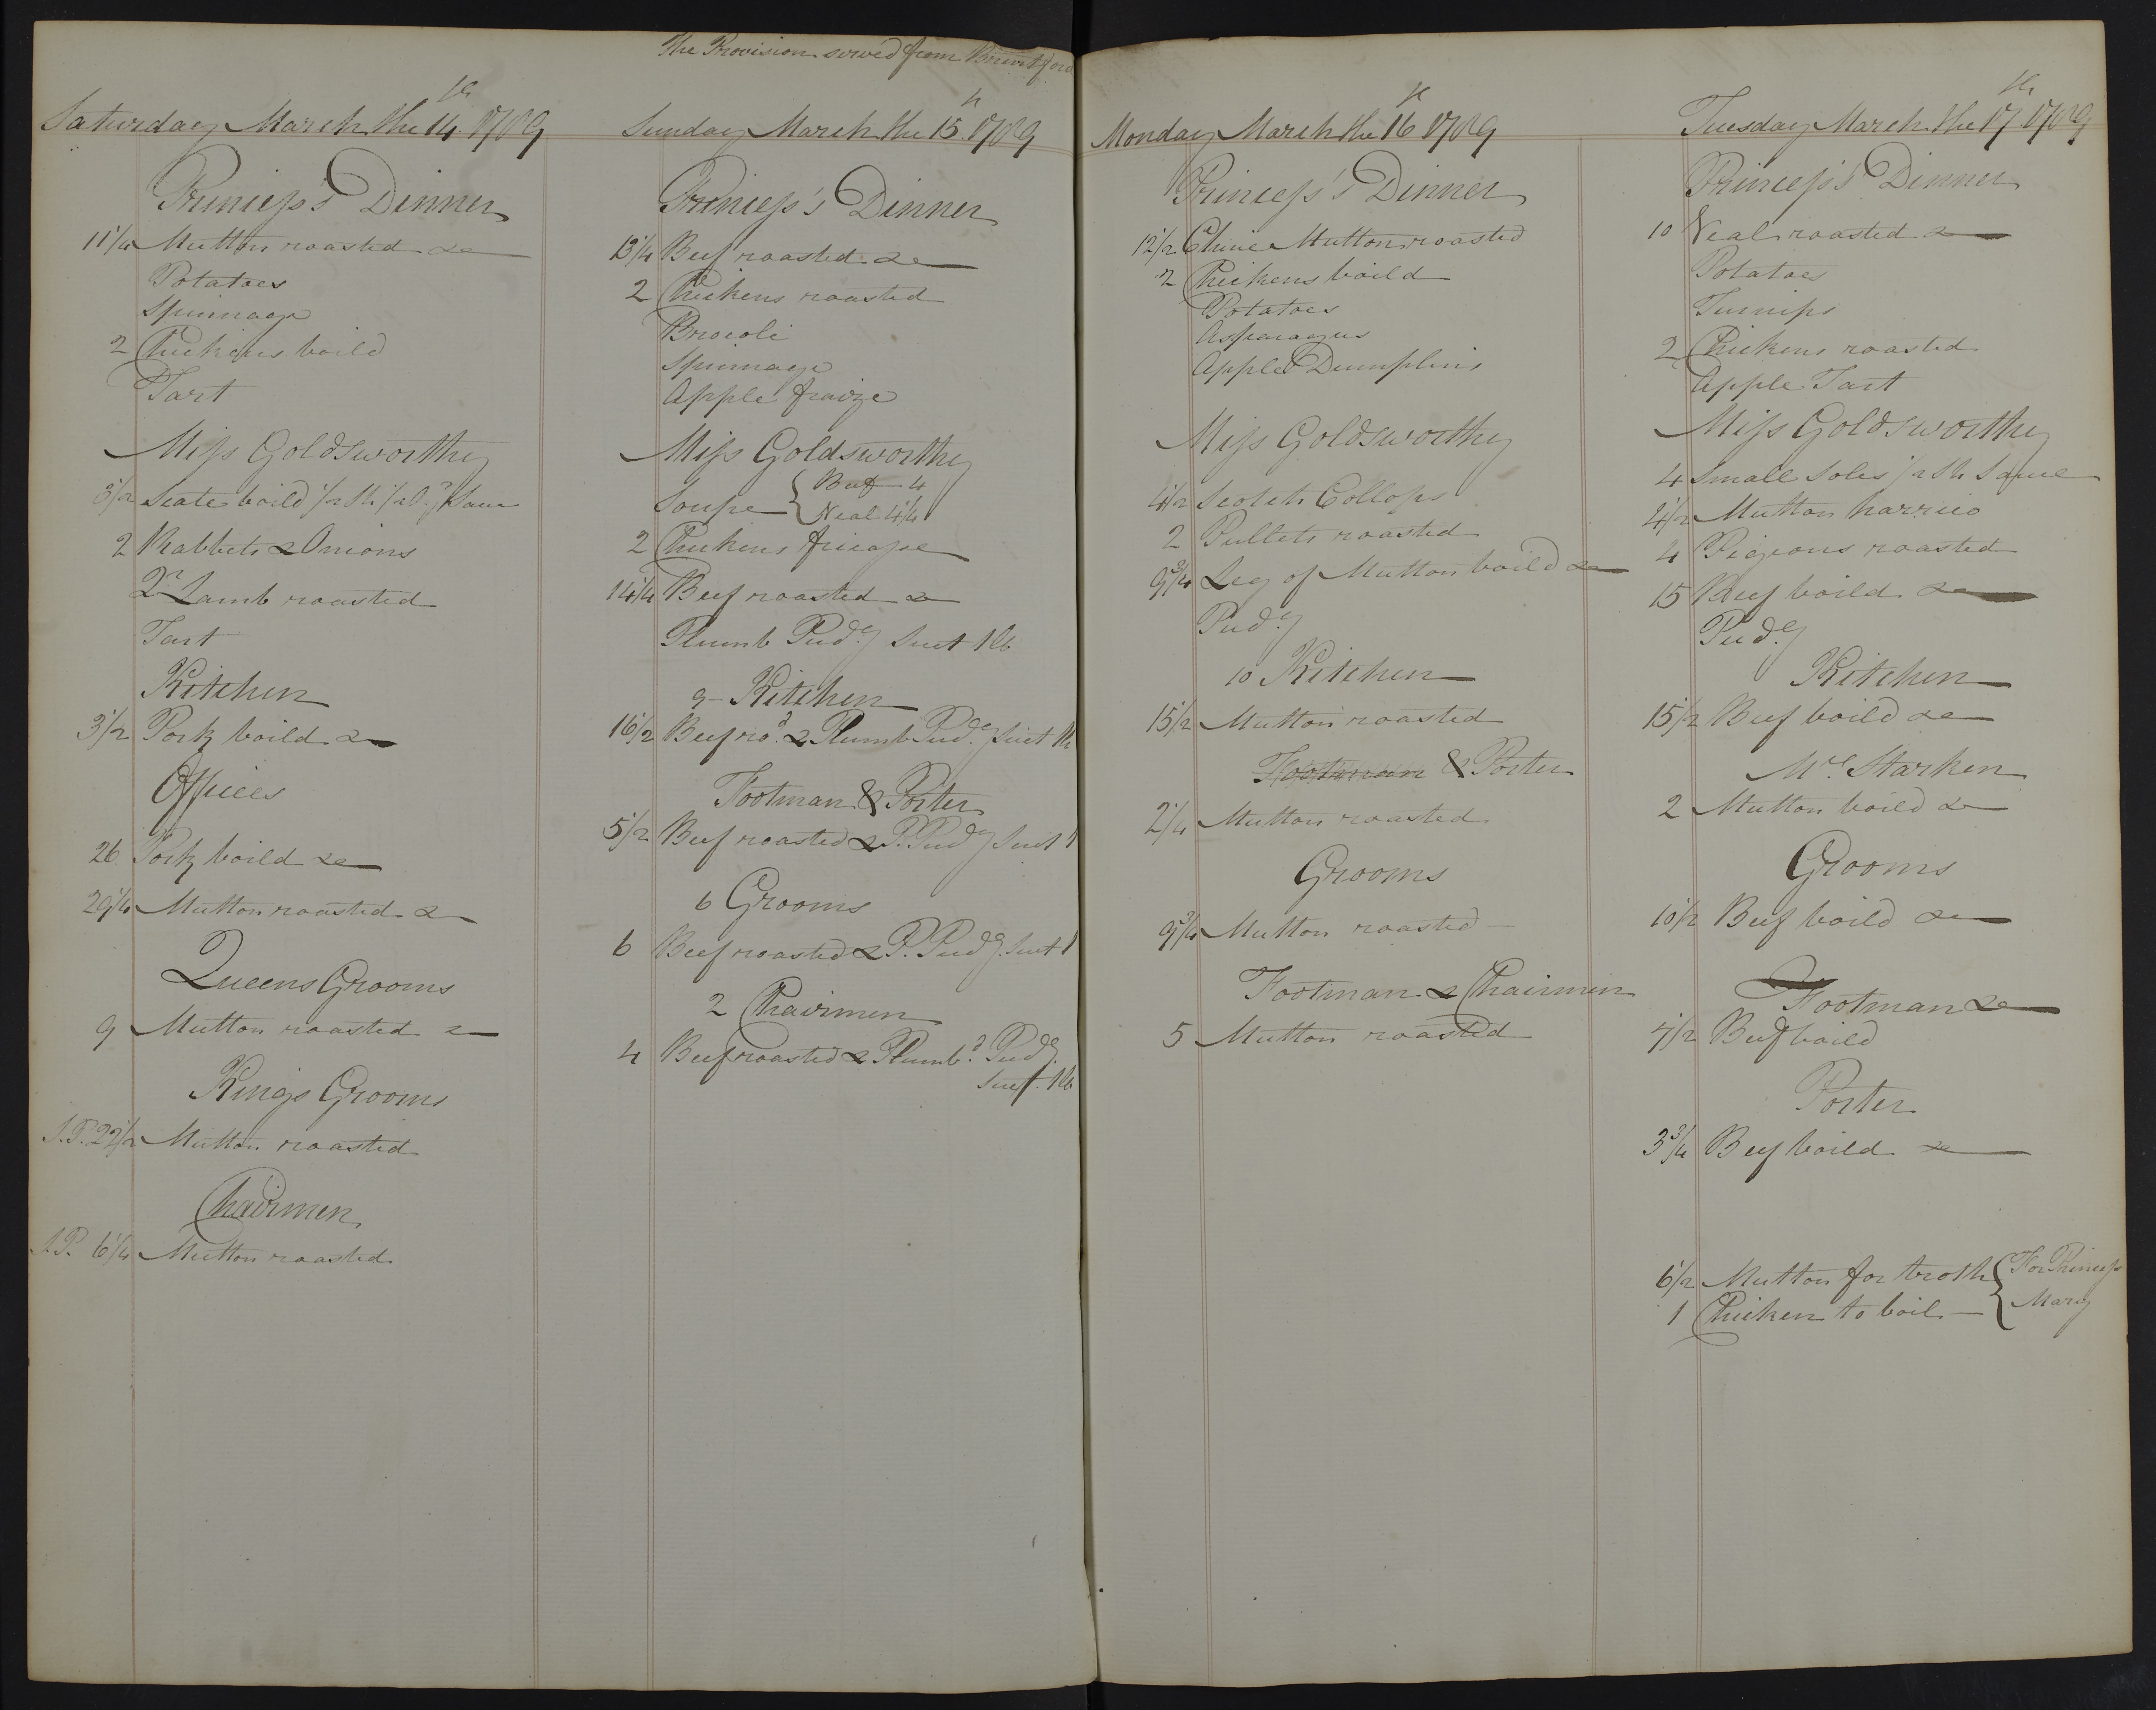 The Provision served from Brentford
Saturday March the 14th 1789
Princess's Dinner
11 1/4 Mutton roasted &c
Potatoes
Spinnage
2 Chickens boild
Tart
Miss Goldsworthy
Scate boild 1/2 Sh 1/2 Oyr Sauce
2 Rabbets & Onions
Qr Lamb roasted
Tart
Kitchen
3 1/2 Pork boild &c
Offices
26 Pork boild &c
29 1/4 Mutton roasted &c
Queens Grooms
9 Mutton roasted &c
Kings Grooms
S.P. 22 1/2 Mutton roasted
Chairmen
S.P. 6 1/4 Mutton roasted
Sunday March the 15th 1789
Princess's Dinner
13 1/4 Beef roasted &c
2 Chickens roasted
Brocoli
Spinnage
Apple fraize
Miss Goldsworthy
Soupe { Beef 4
Veal 4 1/4
2 Chickens fricasse
14 1/4 Beef roasted &c
Plumb Pudg Suet 1 lb
9 Kitchen
16 1/2 Beef rod & Plumb Pudg Suet 1 lb
Footman & Porter
5 1/2 Beef roasted & P. Pudg Suet 1
6 Grooms
6 Beef roasted & P. Pudg Suet 1
2 Chairmen
4 Beef roasted & Plumbd Pudg
Suet 1 lb
Monday March the 16th 1789
Princess's Dinner
12 1/2 Chine Mutton roasted
2 Chickens boild
Potatoes
Asparagus
Apple Dumplins
Miss Goldsworthy
4 1/2 Scotch Collops
2 Pullets roasted
9 3/4 Leg of Mutton boild &c
Pudg
10 Kitchen
15 1/2 Mutton roasted
Footman & Porter
2 1/4 Mutton roasted
Grooms
9 3/4 Mutton roasted
Footman & Chairmen
5 Mutton roasted
Tuesday March the 17th 1789
Princess's Dinner
10 Veal roasted &c
Potatoes
Turnips
2 Chickens roasted
Apple Tart
Miss Goldsworthy
4 Small Soles 1/2 Sh Sauce
4 1/2 Mutton harrico
4 Pigeons roasted
15 Beef boild &c
Pudg
Kitchen
15 1/2 Beef boild &c
Mrs Starken
2 Mutton boild &c
Grooms
10 1/2 Beef boild &c
Footman &c
4 1/2 Beef boild
Porter
3 3/4 Beef boild &c
6 1/2 Mutton for broth { For Princess
1 Chicken to boil { Mary